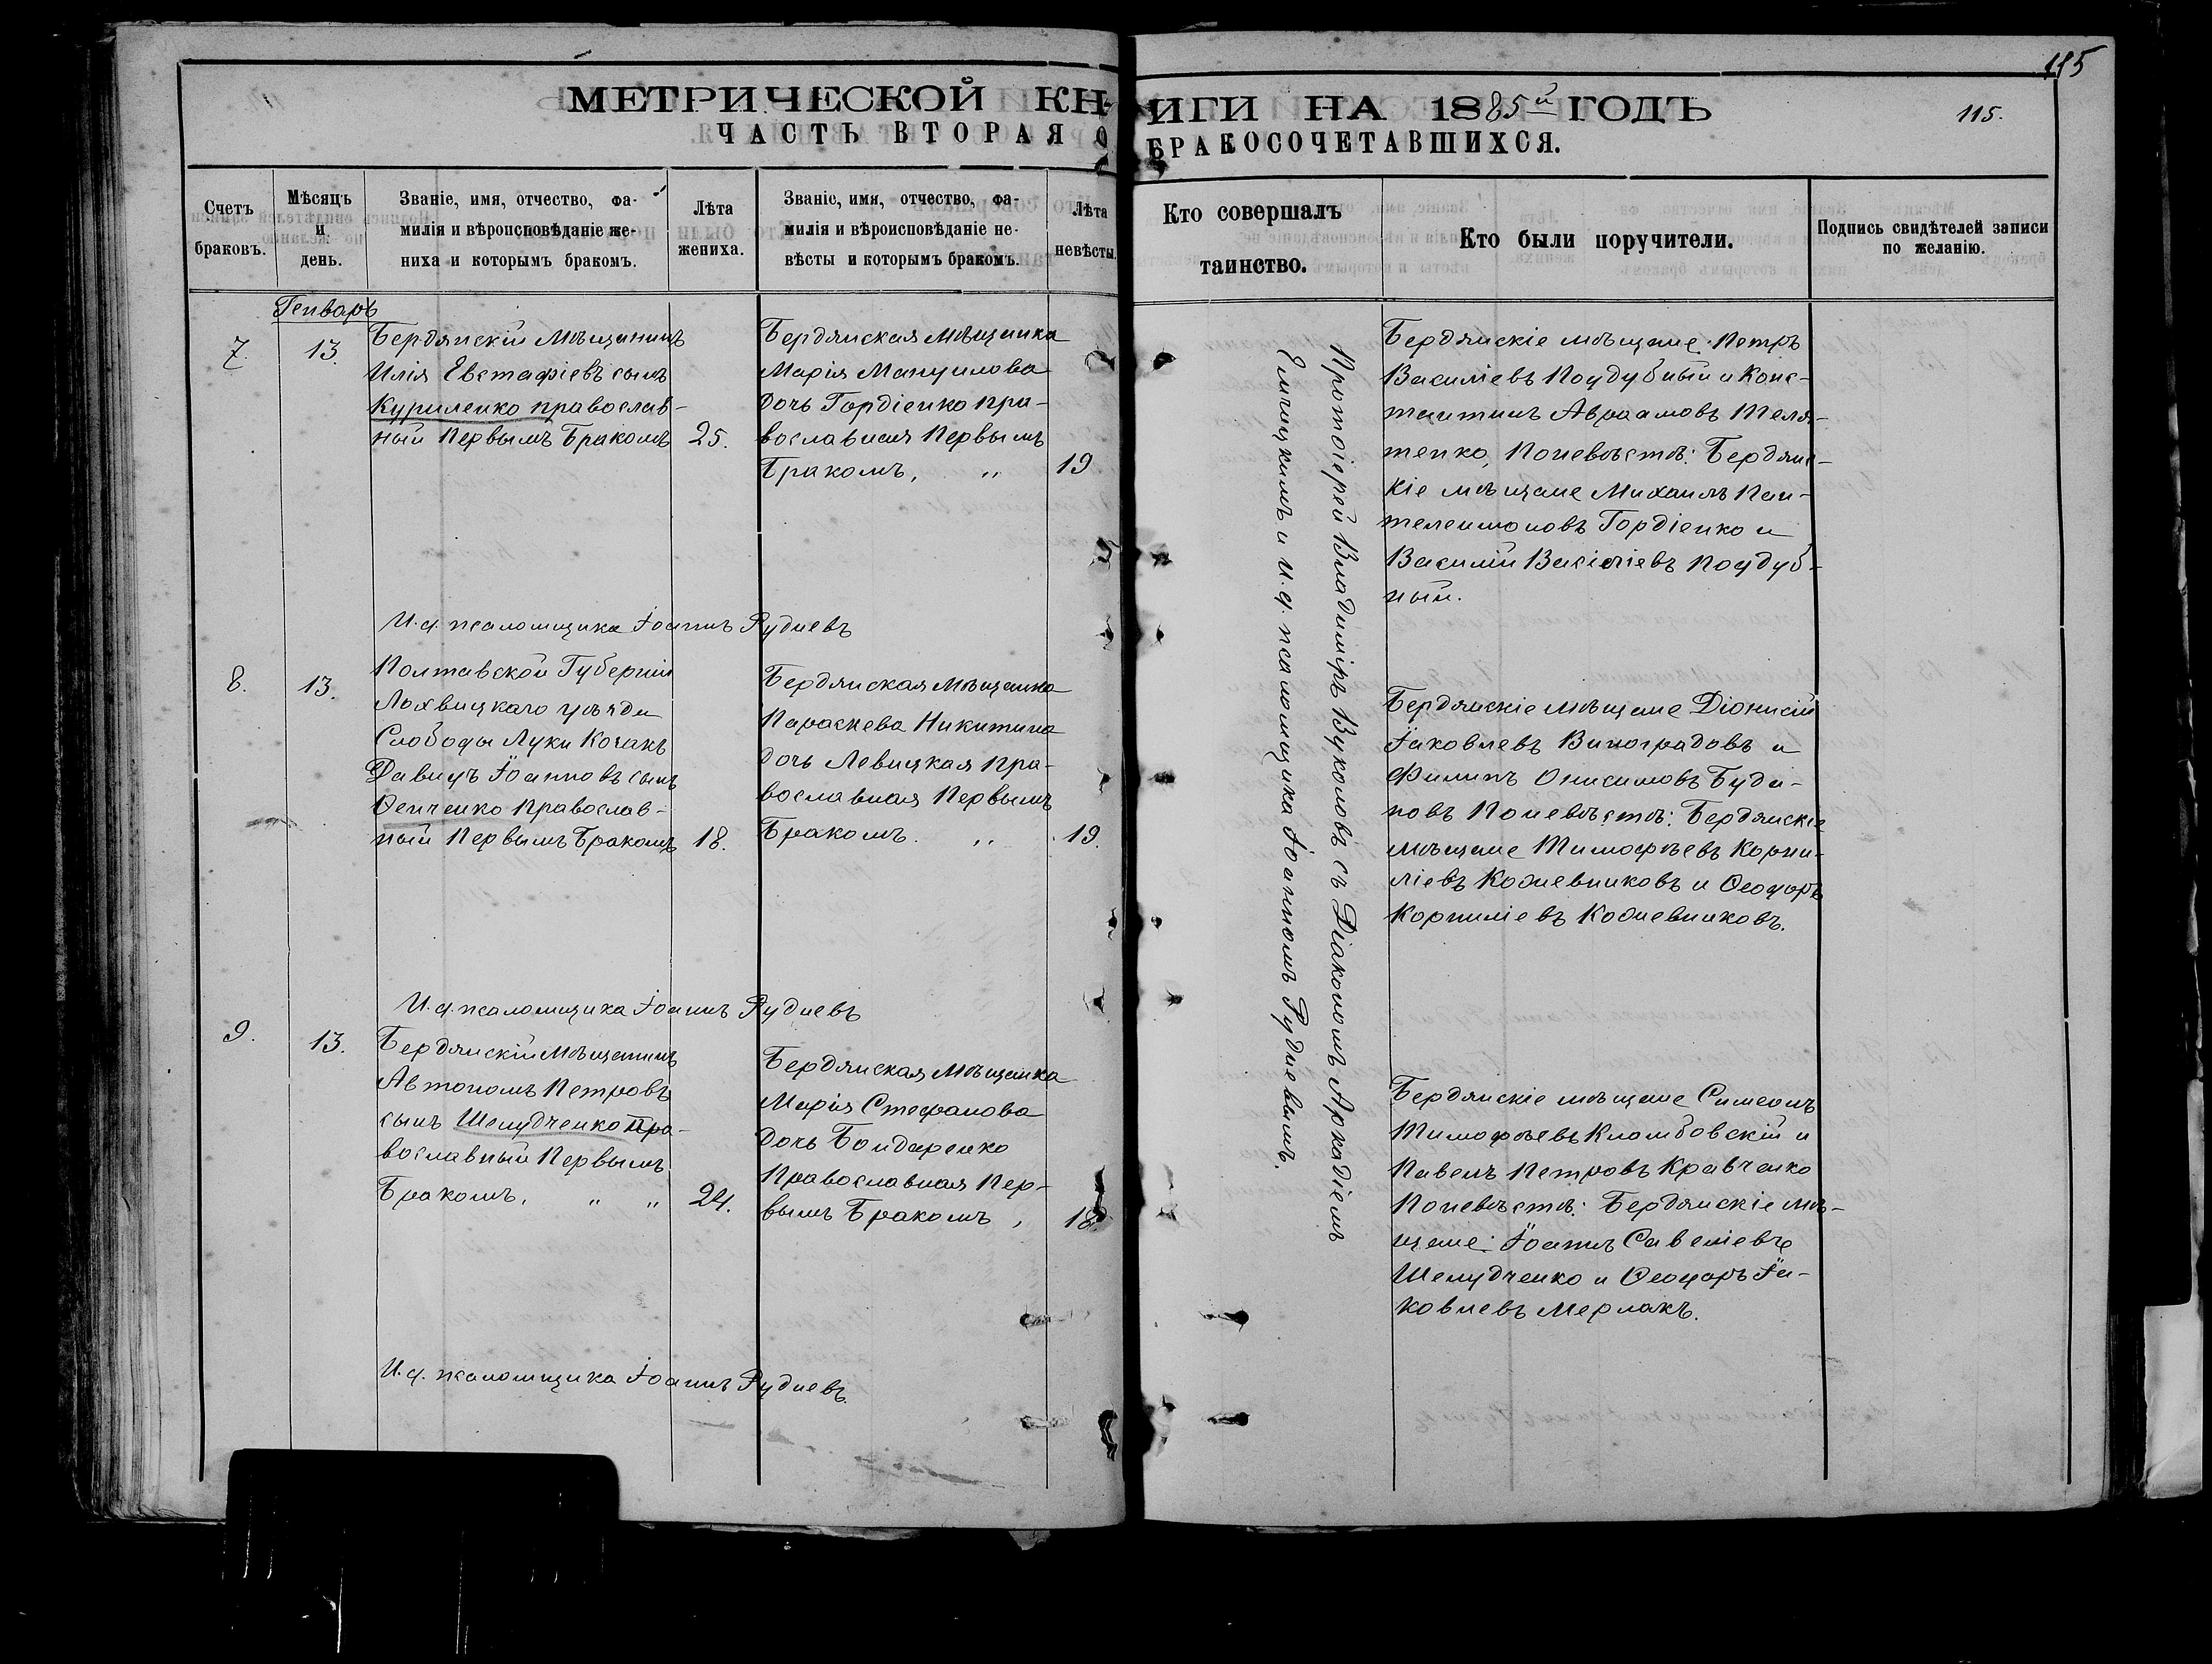 115
МЕТРИЧЕСКОЙ КНИГИ НА 1885й ГОДЪ
115.
ЧАСТЬ ВТОРАЯ О БРАКОСОЧЕТАВШИХСЯ.
Счетъ браковъ.
Мѣсяцъ и день.
Званіе, имя, отчество, фа-
милія и вѣроисповѣданіе же-
ниха и которымъ бракомъ.
Лѣта жениха.
Званіе, имя, отчество, фа-
милія и вѣроисповѣданіе не-
вѣсты и которымъ бракомъ.
Лѣта невѣсты.
Кто совершалъ
таинство.
Кто были поручители.
Подпись свидѣтелей записи
по желанію.
Генварь
7.
13.
Бердянскій Мѣщанинъ
Илія Евстафіевъ сынъ
Куриленко православ-
ный Первымъ Бракомъ
25.
Бердянская Мѣщанка
Марія Мануилова
дочь Гордіенко пра-
вославная Первымъ
Бракомъ, „
19
Бердянскіе мѣщане Петръ
Василіевъ Поддубный и Конс-
тантинъ Авраамовъ Теля-
тенко, Поневѣстѣ: Бердянс-
кіе мѣщане Михаилъ Пан-
телеимоновъ Гордіенко и
Василій Василіевъ Поддуб-
ный.
И.д. псаломщика Іоаннъ Рудневъ
8.
13.
Полтавской Губерніи
Лохвицкаго уѣзда
Слободы Луки Козакъ
Давидъ Іоанновъ сынъ
Ѳенченко Православ-
ный Первымъ Бракомъ
18.
Бердянская Мѣщанка
Параскева Никитина
дочь Левицкая Пра-
вославная Первымъ
Бракомъ. „
19.
Бердянскіе мѣщане Діонисій
Іаковлевъ Виноградовъ и
Филипъ Онисимовъ Буда-
новъ Поневѣстѣ: Бердянскіе
мѣщане Тимофѣевъ Корни-
ліевъ Кожевниковъ и Ѳеодоръ
Корниліевъ Кожевниковъ.
И.д. псаломщика Іоаннъ Рудневъ
9.
13.
Бердянскій Мѣщанинъ
Автономъ Петровъ
сынъ Шелудченко Пра-
вославный Первымъ
Бракомъ, „ „
24.
Бердянская Мѣщанка
Марія Стефанова
дочь Бондаренко
Православная Пер-
вымъ Бракомъ,
18.
Бердянскіе мѣщане Симеонъ
Тимофѣевъ Кломбовскій и
Павелъ Петровъ Кравченко
Поневѣстѣ: Бердянскіе мѣ-
щане: Іоаннъ Савеліевъ
Шелудченко и Ѳеодоръ Іа-
ковлевъ Мерлакъ.
И.д. псаломщика Іоаннъ Рудневъ.
Протоіерей Владиміръ Вуколовъ съ Діакономъ Аркадіемъ
и И.д. псаломщика Іоанномъ Рудневымъ.